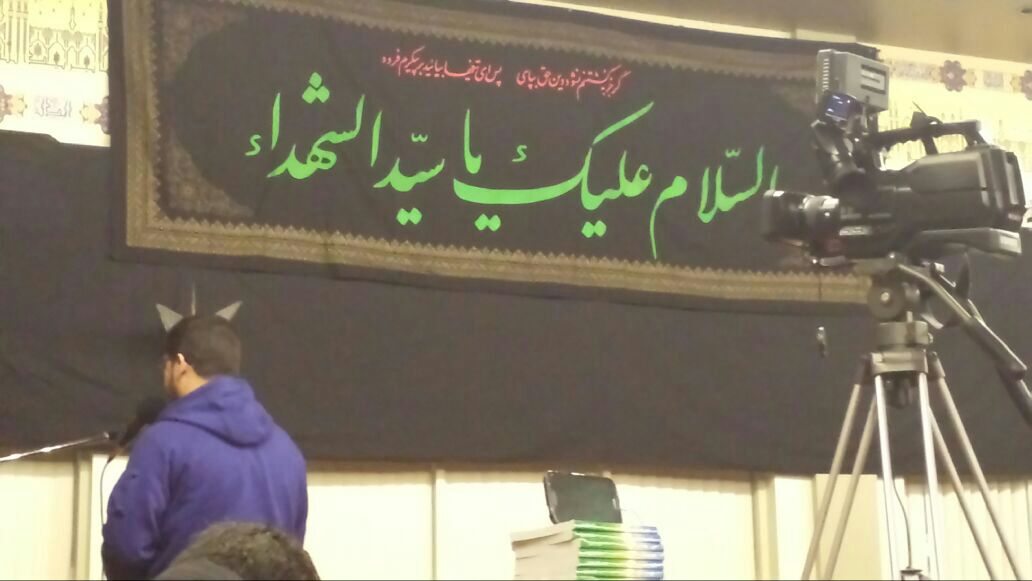 گر جز بکشتنم نشود دین حق بپای پس ای تیغها بیائید بر پیکرم فرود
السّلام علیک یا سیّد الشهداء